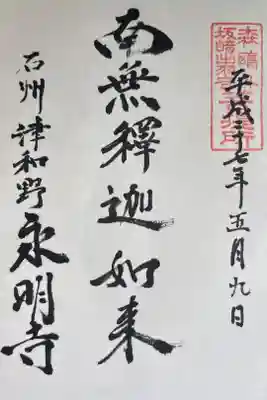 森鷗
坂崎出羽守
平成二十七年五月九日
南無釋迦如来
石州津和野永明寺